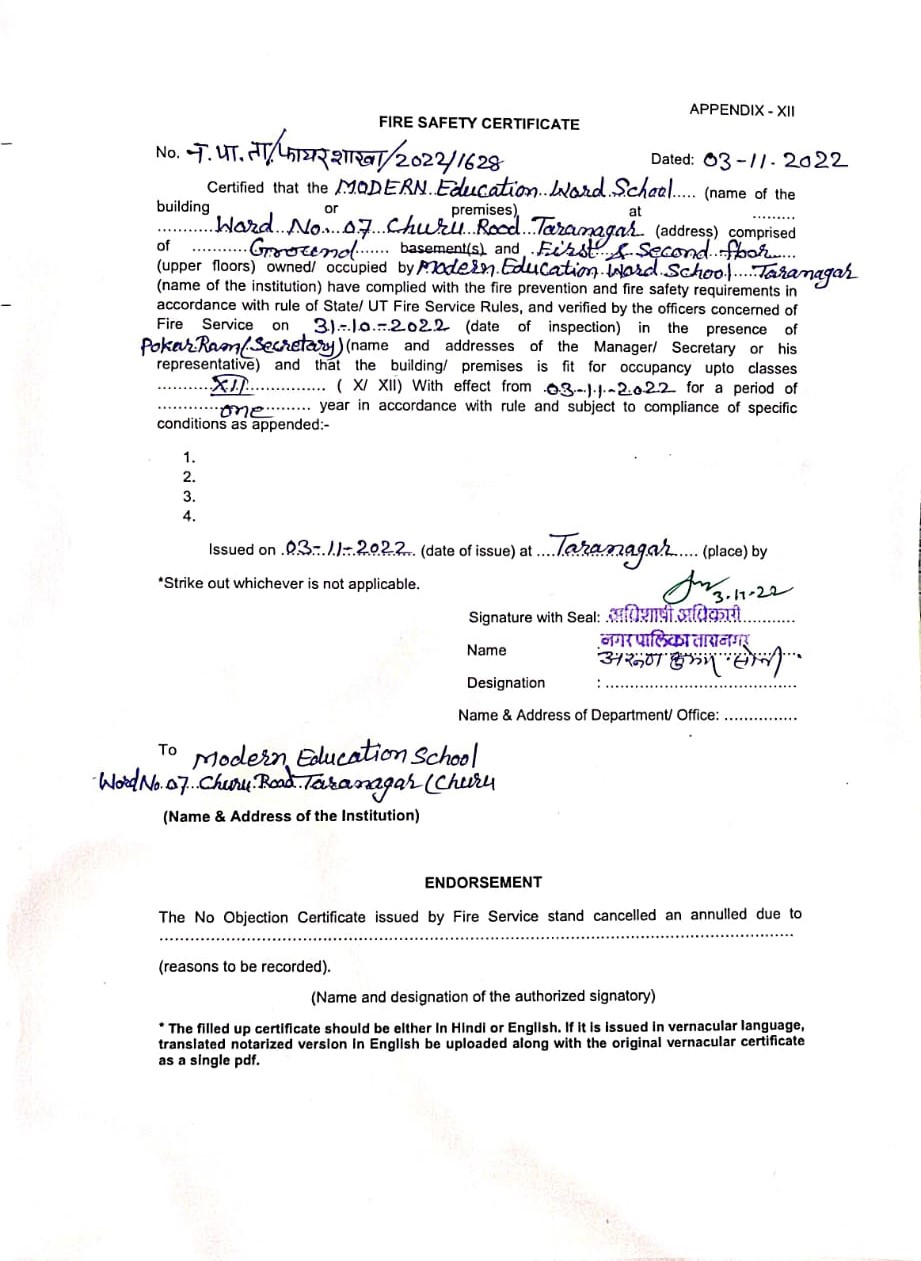 APPENDIX - XII
FIRE SAFETY CERTIFICATE
No. न.पा.ता/फायरशाखा/2022/1628 Dated: 03-11-2022
Certified that the MODERN Education Word School..... (name of the
building or premises) at .........
............Word No. 07 Churu Road Taranagar (address) comprised
of ...........Ground....... basement(s) and .First & Second floor....
(upper floors) owned/ occupied by Modern Education Word School....Taranagar
(name of the institution) have complied with the fire prevention and fire safety requirements in
accordance with rule of State/ UT Fire Service Rules, and verified by the officers concerned of
Fire Service on 31-10-2022 (date of inspection) in the presence of
Pokar Ram (Secretary) (name and addresses of the Manager/ Secretary or his
representative) and that the building/ premises is fit for occupancy upto classes
...........XII................ ( X/ XII) With effect from .03-11-2022 for a period of
.............one.......... year in accordance with rule and subject to compliance of specific
conditions as appended:-
1.
2.
3.
4.
Issued on .03-11-2022. (date of issue) at ....Taranagar.... (place) by
*Strike out whichever is not applicable.
3-11-22
Signature with Seal: अधिशाषी अधिकारी...........
नगर पालिका तारानगर
Name अरूण कुमार सोनी
Designation : ......................................
Name & Address of Department/ Office: ...............
To Modern Education School
Word No. 07 Churu Road Taranagar (Churu
(Name & Address of the Institution)
ENDORSEMENT
The No Objection Certificate issued by Fire Service stand cancelled an annulled due to
................................................................................................................................
(reasons to be recorded).
(Name and designation of the authorized signatory)
* The filled up certificate should be either in Hindi or English. If it is issued in vernacular language,
translated notarized version in English be uploaded along with the original vernacular certificate
as a single pdf.